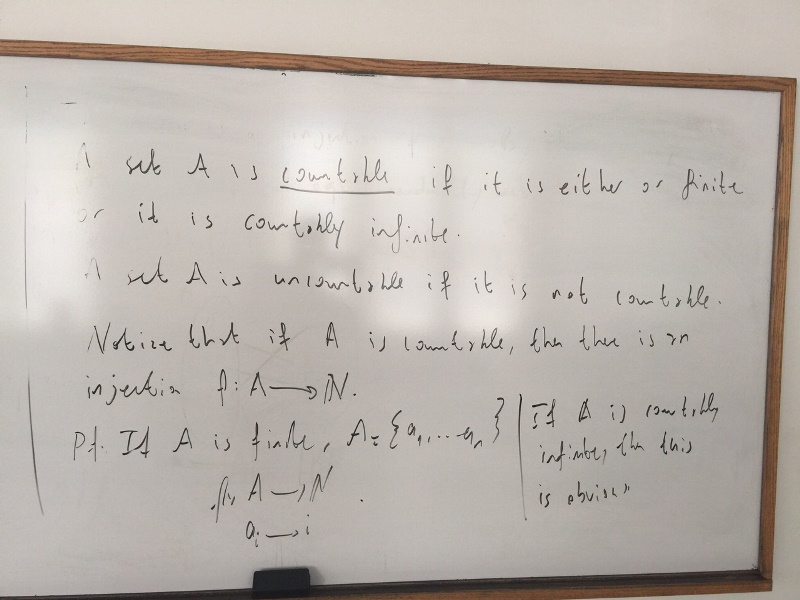 A set A is countable if it is either or finite
or it is countably infinite.
A set A is uncountable if it is not countable.
Notice that if A is countable, then there is an
injection f: A → ℕ.
Pf. If A is finite, A = {a₁, ... aₙ}
f: A → ℕ
aᵢ → i
If A is countably
infinite, then this
is obvious